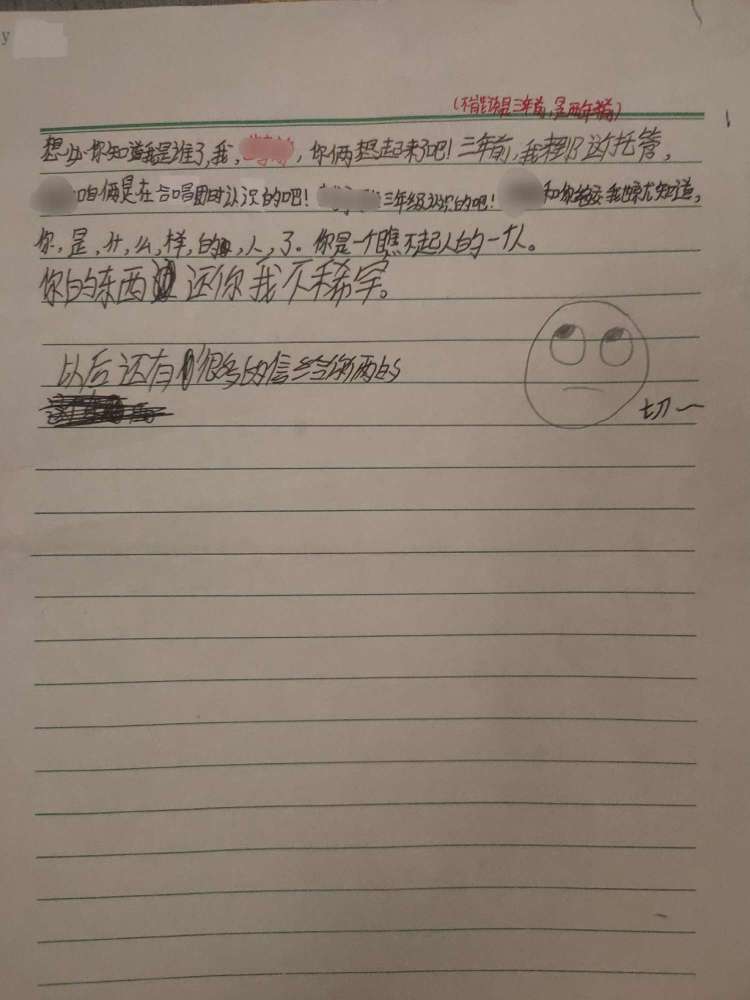 y
(不能说是三年前,是两年半前)
想必你知道我是谁了,我, ,你俩想起来了吧!三年前,我来到这托管,
咱俩是在合唱团时认识的吧! 三年级认识的吧! 和你我也就知道,
你,是,什,么,样,的,人,了。你是一个瞧不起人的一个人。
你的东西还你我不稀罕。
以后还有很多的信给你两的
切~